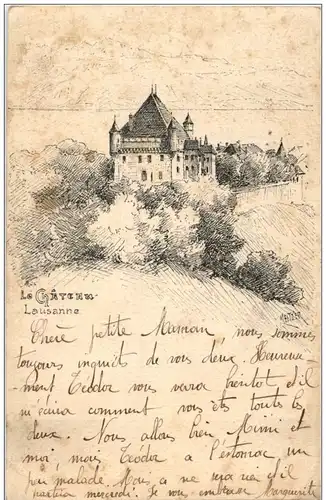 Le Château
Lausanne
Chère petite Maman, nous sommes
toujours inquiets de vous deux. Heureuse-
ment Teodor vous verra bientôt et il
m'écrira comment vous êtes toutes les
deux. Nous allons bien Mimi et
moi, mais Teodor a l'estomac un
peu malade. on a ne sais s'il
partira mercredi. Je vous embrasse Marguerite